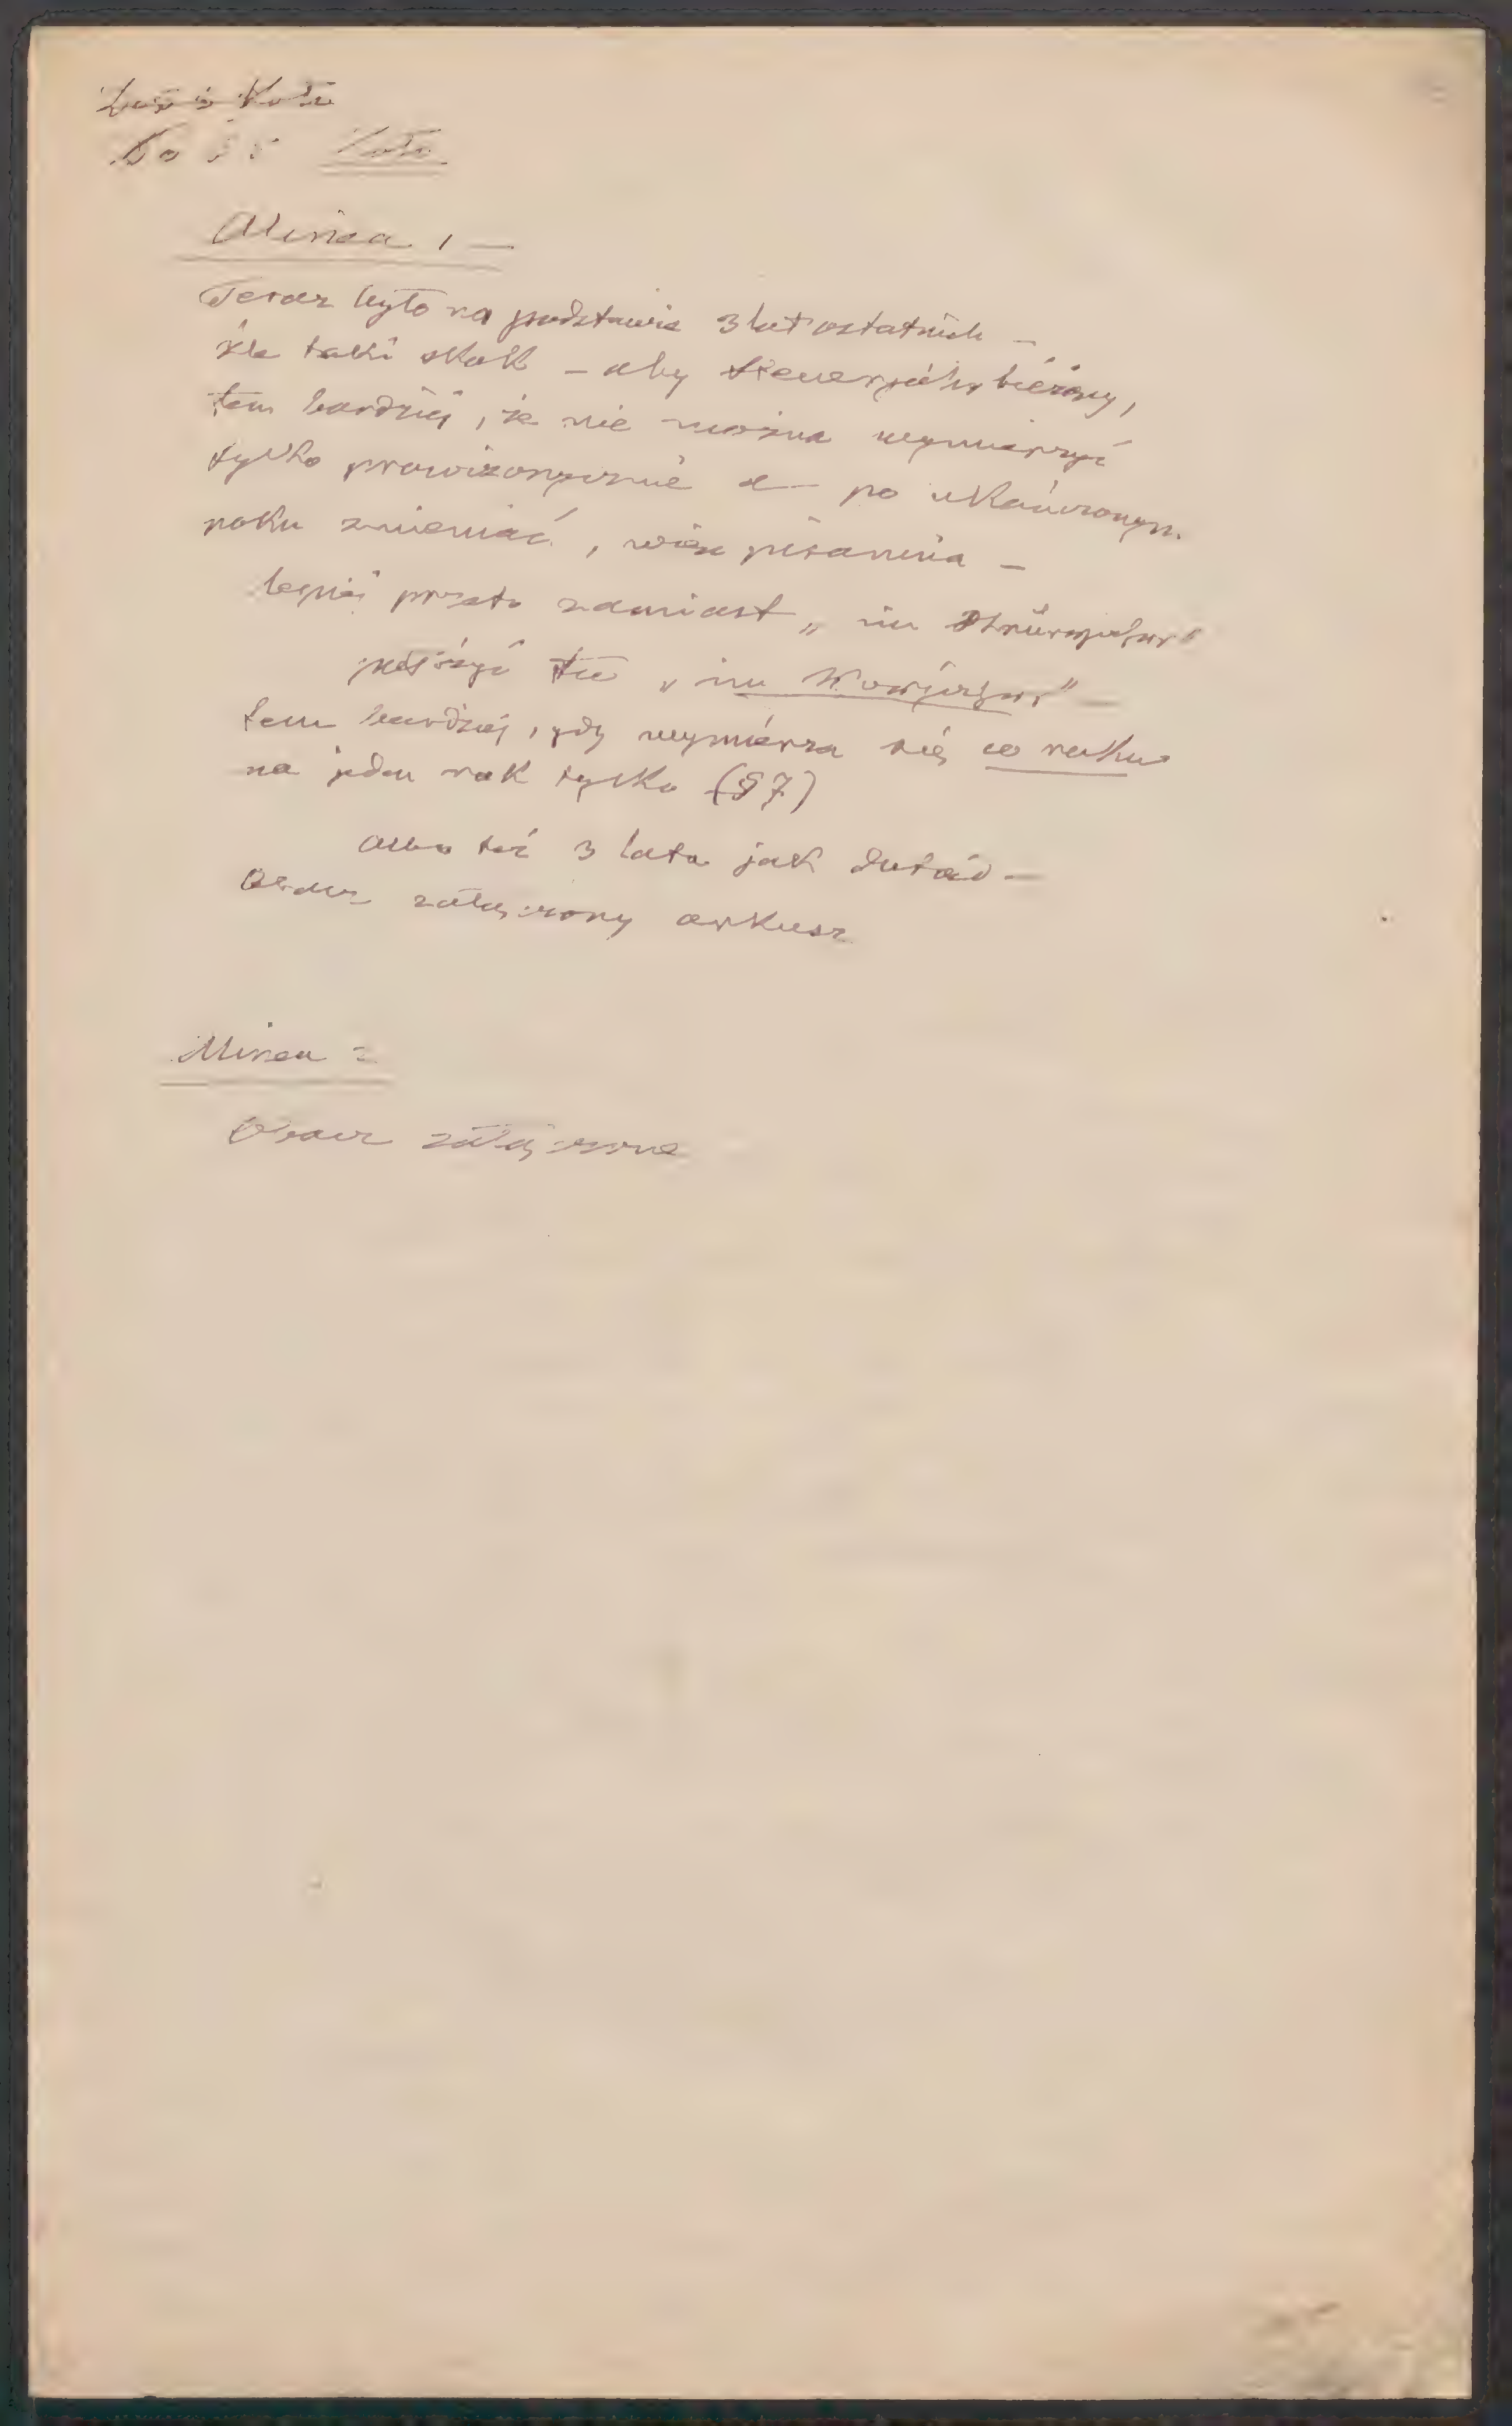 Do § 5
Alinea 1 —
Teraz było na podstawie 3 lat ostatnich —
źle taki skok — aby Steuerjahr bieżący,
tem bardziej, że nie można wymierzyć
tylko prowizorycznie a po ukończonym
roku zmieniać, więc pisanina —
lepiej przeto zamiast „im Steuerjahr"
położyć tu „im Vorjahr" —
tem bardziej, gdy wymierza się co roku
na jeden rok tylko (§ 7)
albo też 3 lata jak dotąd —
Obacz załączony arkusz
Alinea 2
Obacz załączone